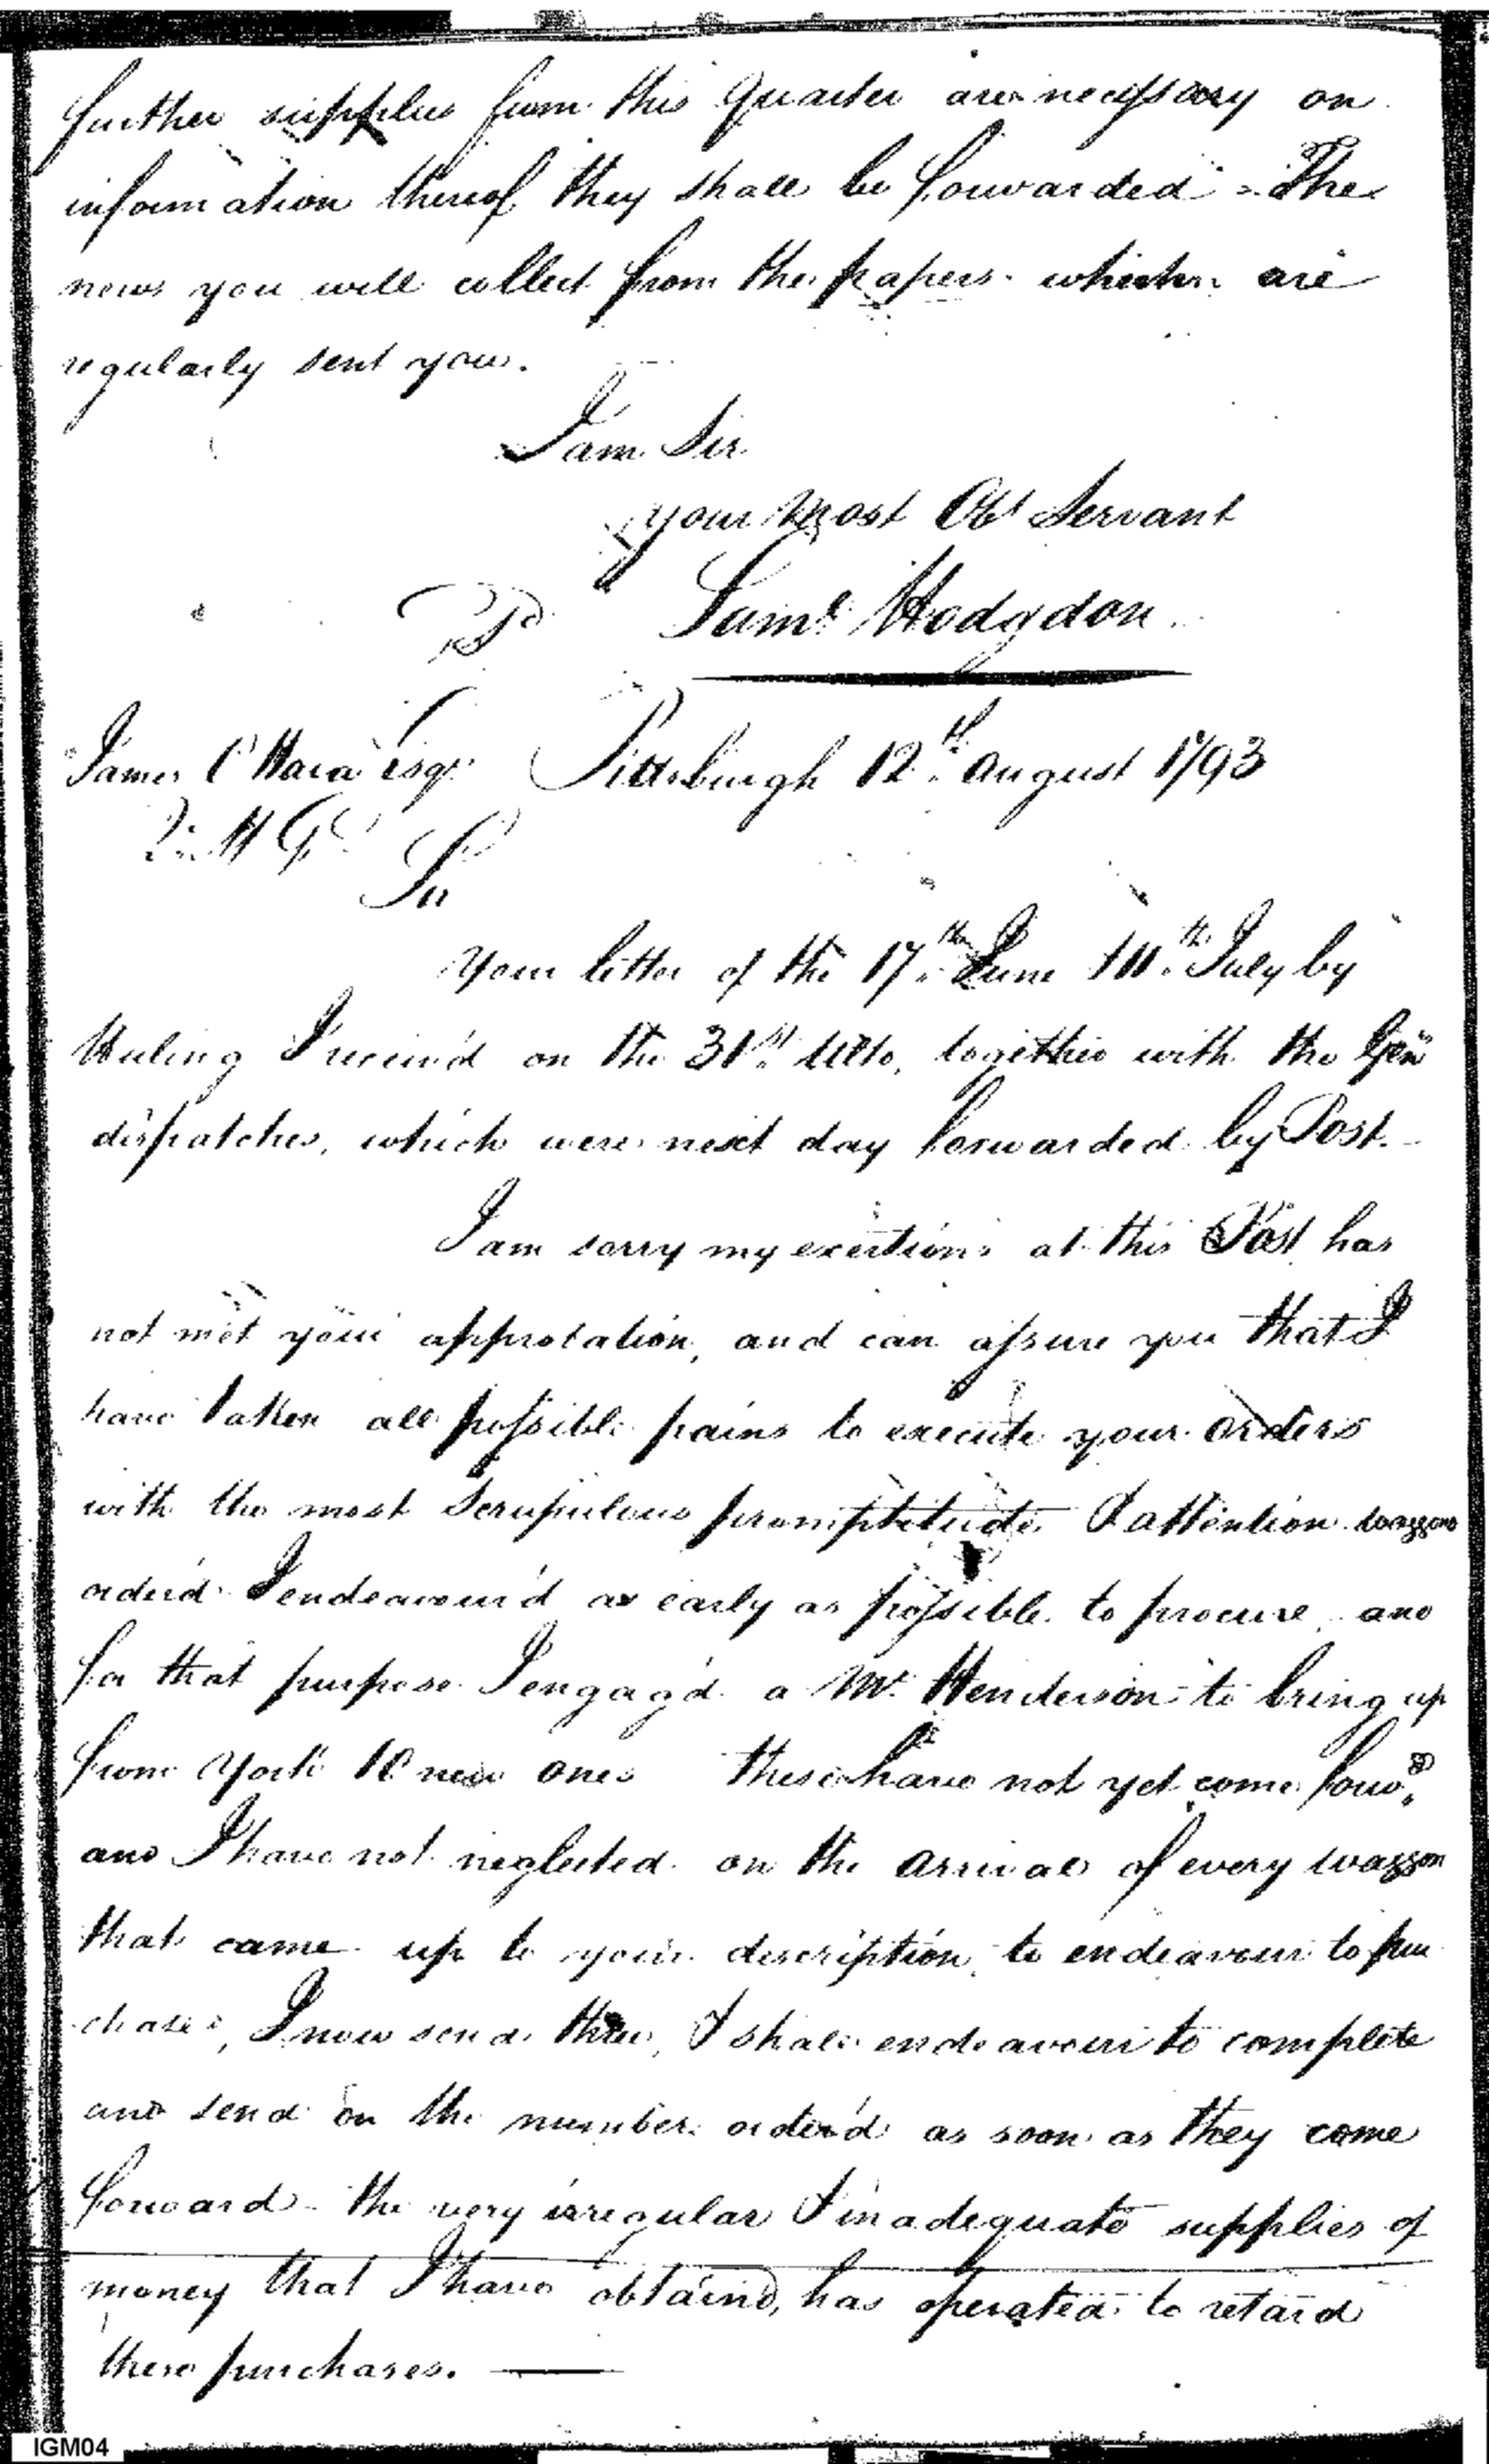 further supplies from this Quarter are necessary on
information thereof they shall be forwarded - The
news you will collect from the papers which are
regularly sent you.
I am Sir
your most Obt Servant
Saml Hodgdon
James O'Hara Esqr Pittsburgh 12th August 1793
Q M G
Sir
Your letter of the 17th June & 10th July by
Huling I receiv'd on the 31st Ulto, together with the Genl
dispatches, which were next day forwarded by Post. -
I am sorry my exertions at this Post has
not met your approbation, and can assure you that I
have taken all possible pains to execute your orders
with the most Scrupulous promptitude & attention waggons
order'd I endeavour'd as early as possible to procure and
for that purpose I engag'd a Mr. Henderson to bring up
from York 10 new ones these have not yet come forwd
and I have not neglected on the arrival of every waggon
that came up to your description, to endeavour to pur
chase, I now send three, & shall endeavour to complete
and send on the number order'd as soon as they come
forward - the very irregular & inadequate supplies of
money that I have obtain'd, has operated to retard
these purchases. —
IGM04